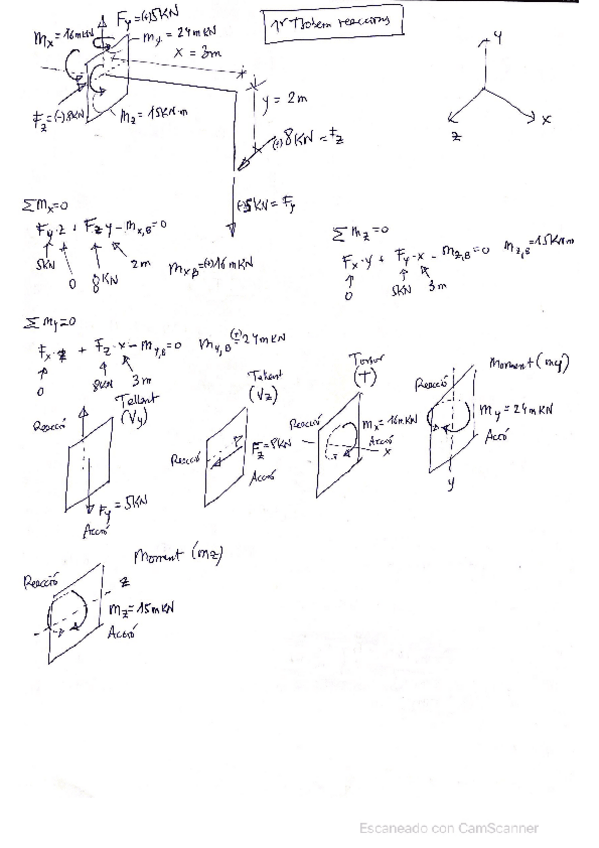 1r Trobem reaccions
Fy=(+)5KN
Mx=16mKN
My=24mKN
x=3m
Fz=(-)8KN
Mz=15KN·m
y=2m
(+)8KN=Fz
(-)5KN=Fy
y
x
z
ΣMx=0
Fy·z + Fz·y - Mx,B=0
5KN
0
8KN
2m
Mx,B=(+)16mKN
ΣMz=0
Fx·y + Fy·x - Mz,B=0 Mz,B=15KNm
0
5KN 3m
ΣMy=0
Fx·z + Fz·x - My,B=0 My,B=(+)24mKN
0
8KN 3m
Tallant
(Vy)
Reacció
Fy=5KN
Acció
Tallant
(Vz)
Reacció
Fz=8KN
Acció
Torsor
(T)
Reacció
Mx=16mKN
Acció
x
Moment (my)
Reacció
My=24mKN
Acció
y
Moment (mz)
Reacció
z
Mz=15mKN
Acció
Escaneado con CamScanner